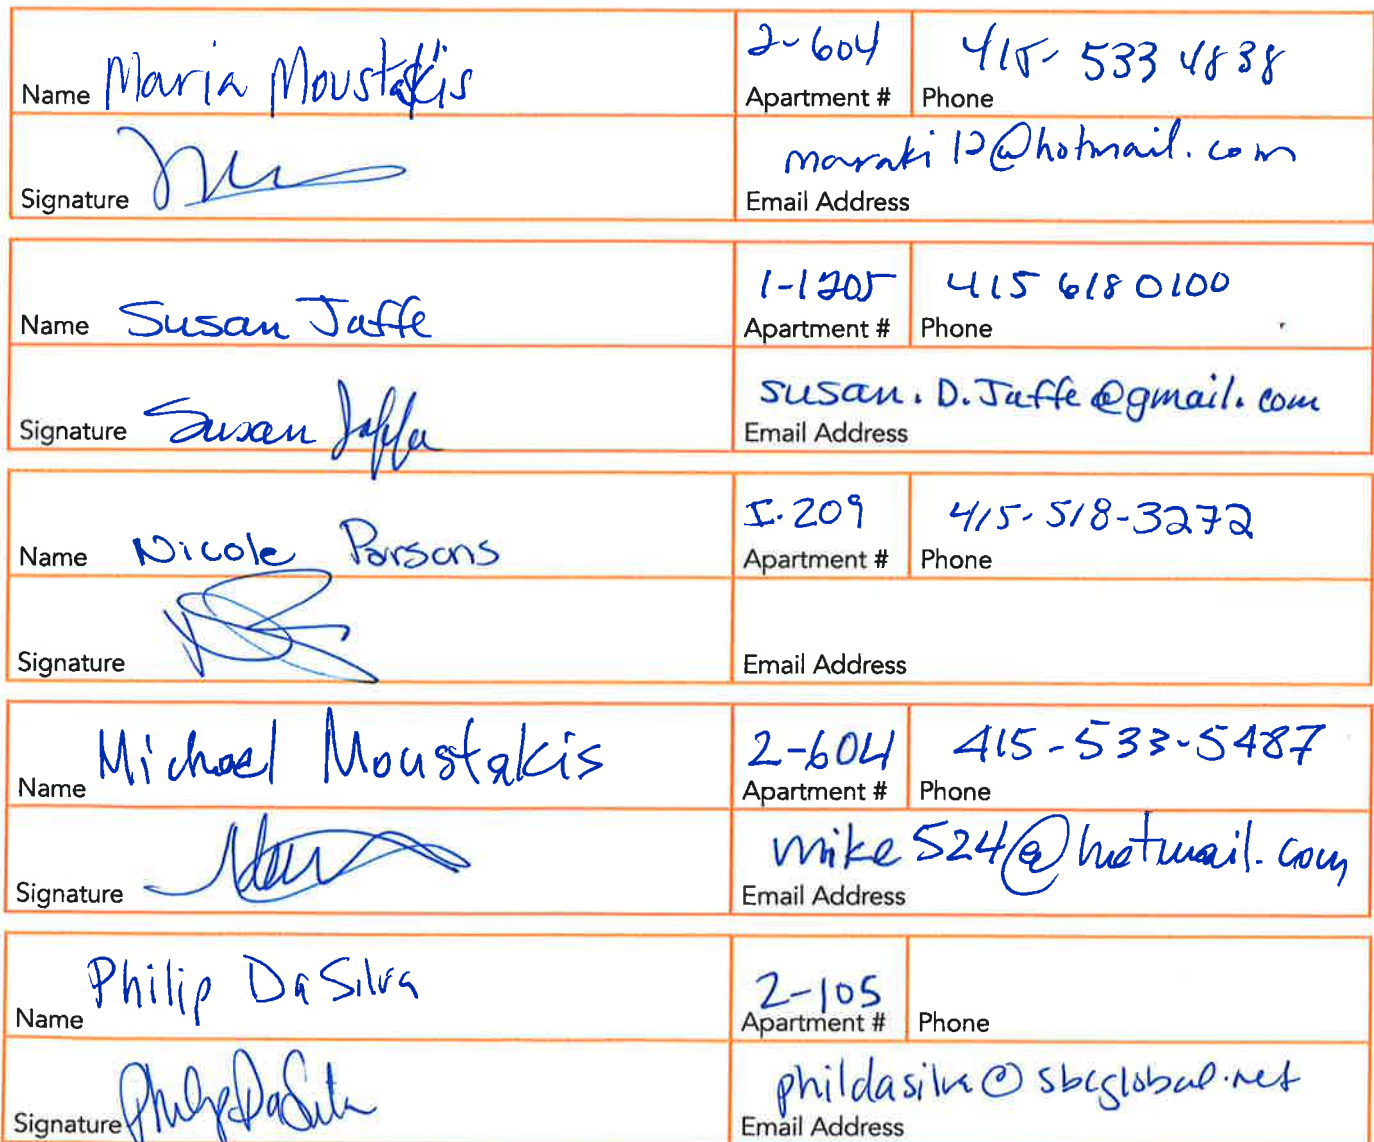 Name Maria Moustakis
2-604
Apartment #
415-533 4838
Phone
Signature
maraki12@hotmail.com
Email Address
Name Susan Jaffe
1-1205
Apartment #
415 618 0100
Phone
Signature Susan Jaffe
susan.D.Jaffe@gmail.com
Email Address
Name Nicole Parsons
I-209
Apartment #
415-518-3272
Phone
Signature
Email Address
Name Michael Moustakis
2-604
Apartment #
415-533-5487
Phone
Signature
mike524@hotmail.com
Email Address
Name Philip DaSilva
2-105
Apartment #
Phone
Signature Philip DaSilva
phildasilva@sbcglobal.net
Email Address